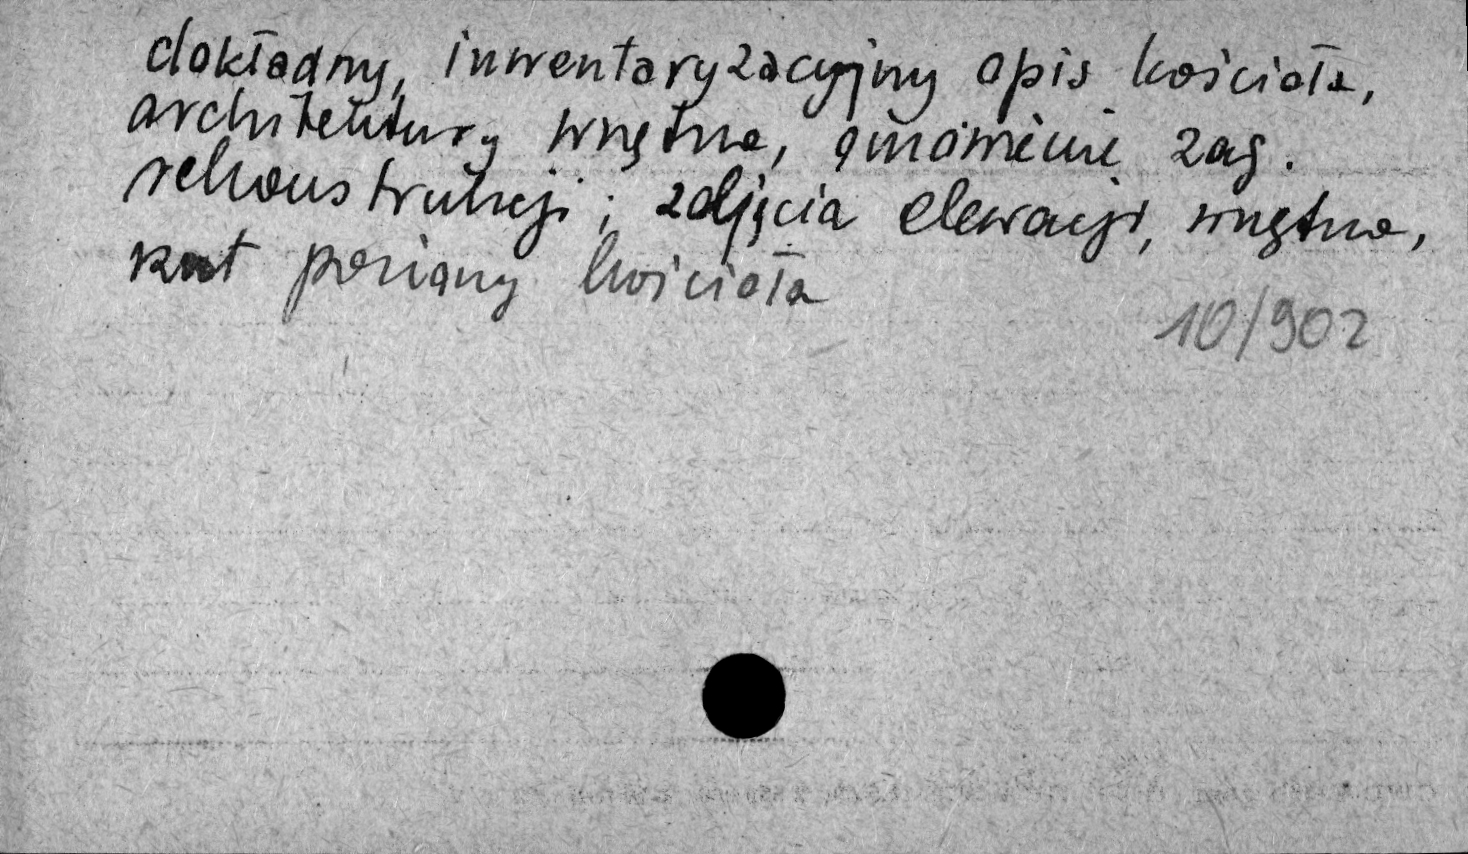 dokładny, inwentaryzacyjny opis kościoła,
architektury wnętrza, omówienie zag.
rekonstrukcji; zdjęcia elewacji, wnętrza,
kościoła
10/902